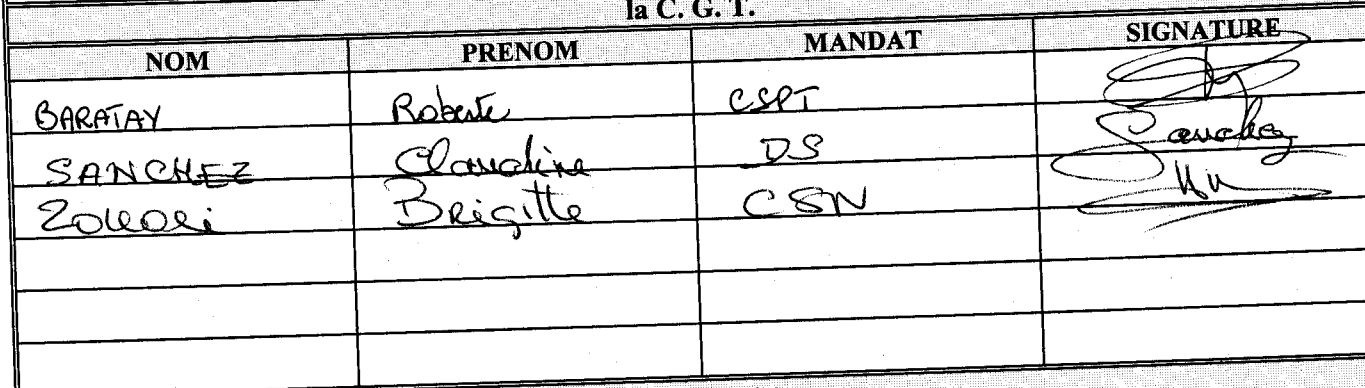 la C. G. T.
NOM PRENOM MANDAT SIGNATURE
BARATAY Roberte CSPT
SANCHEZ Claudine DS Sanchez
Brigitte CSN